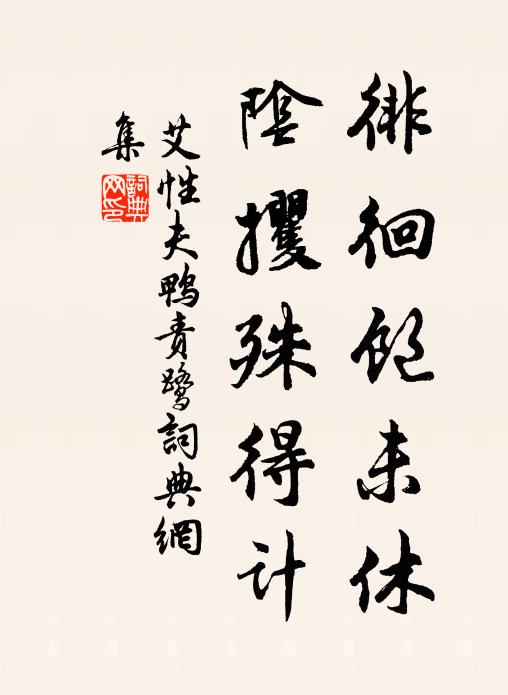 徘徊飽未休
陰攫殊得計
艾性夫鴨責鷺詞典網
集
詞典網印